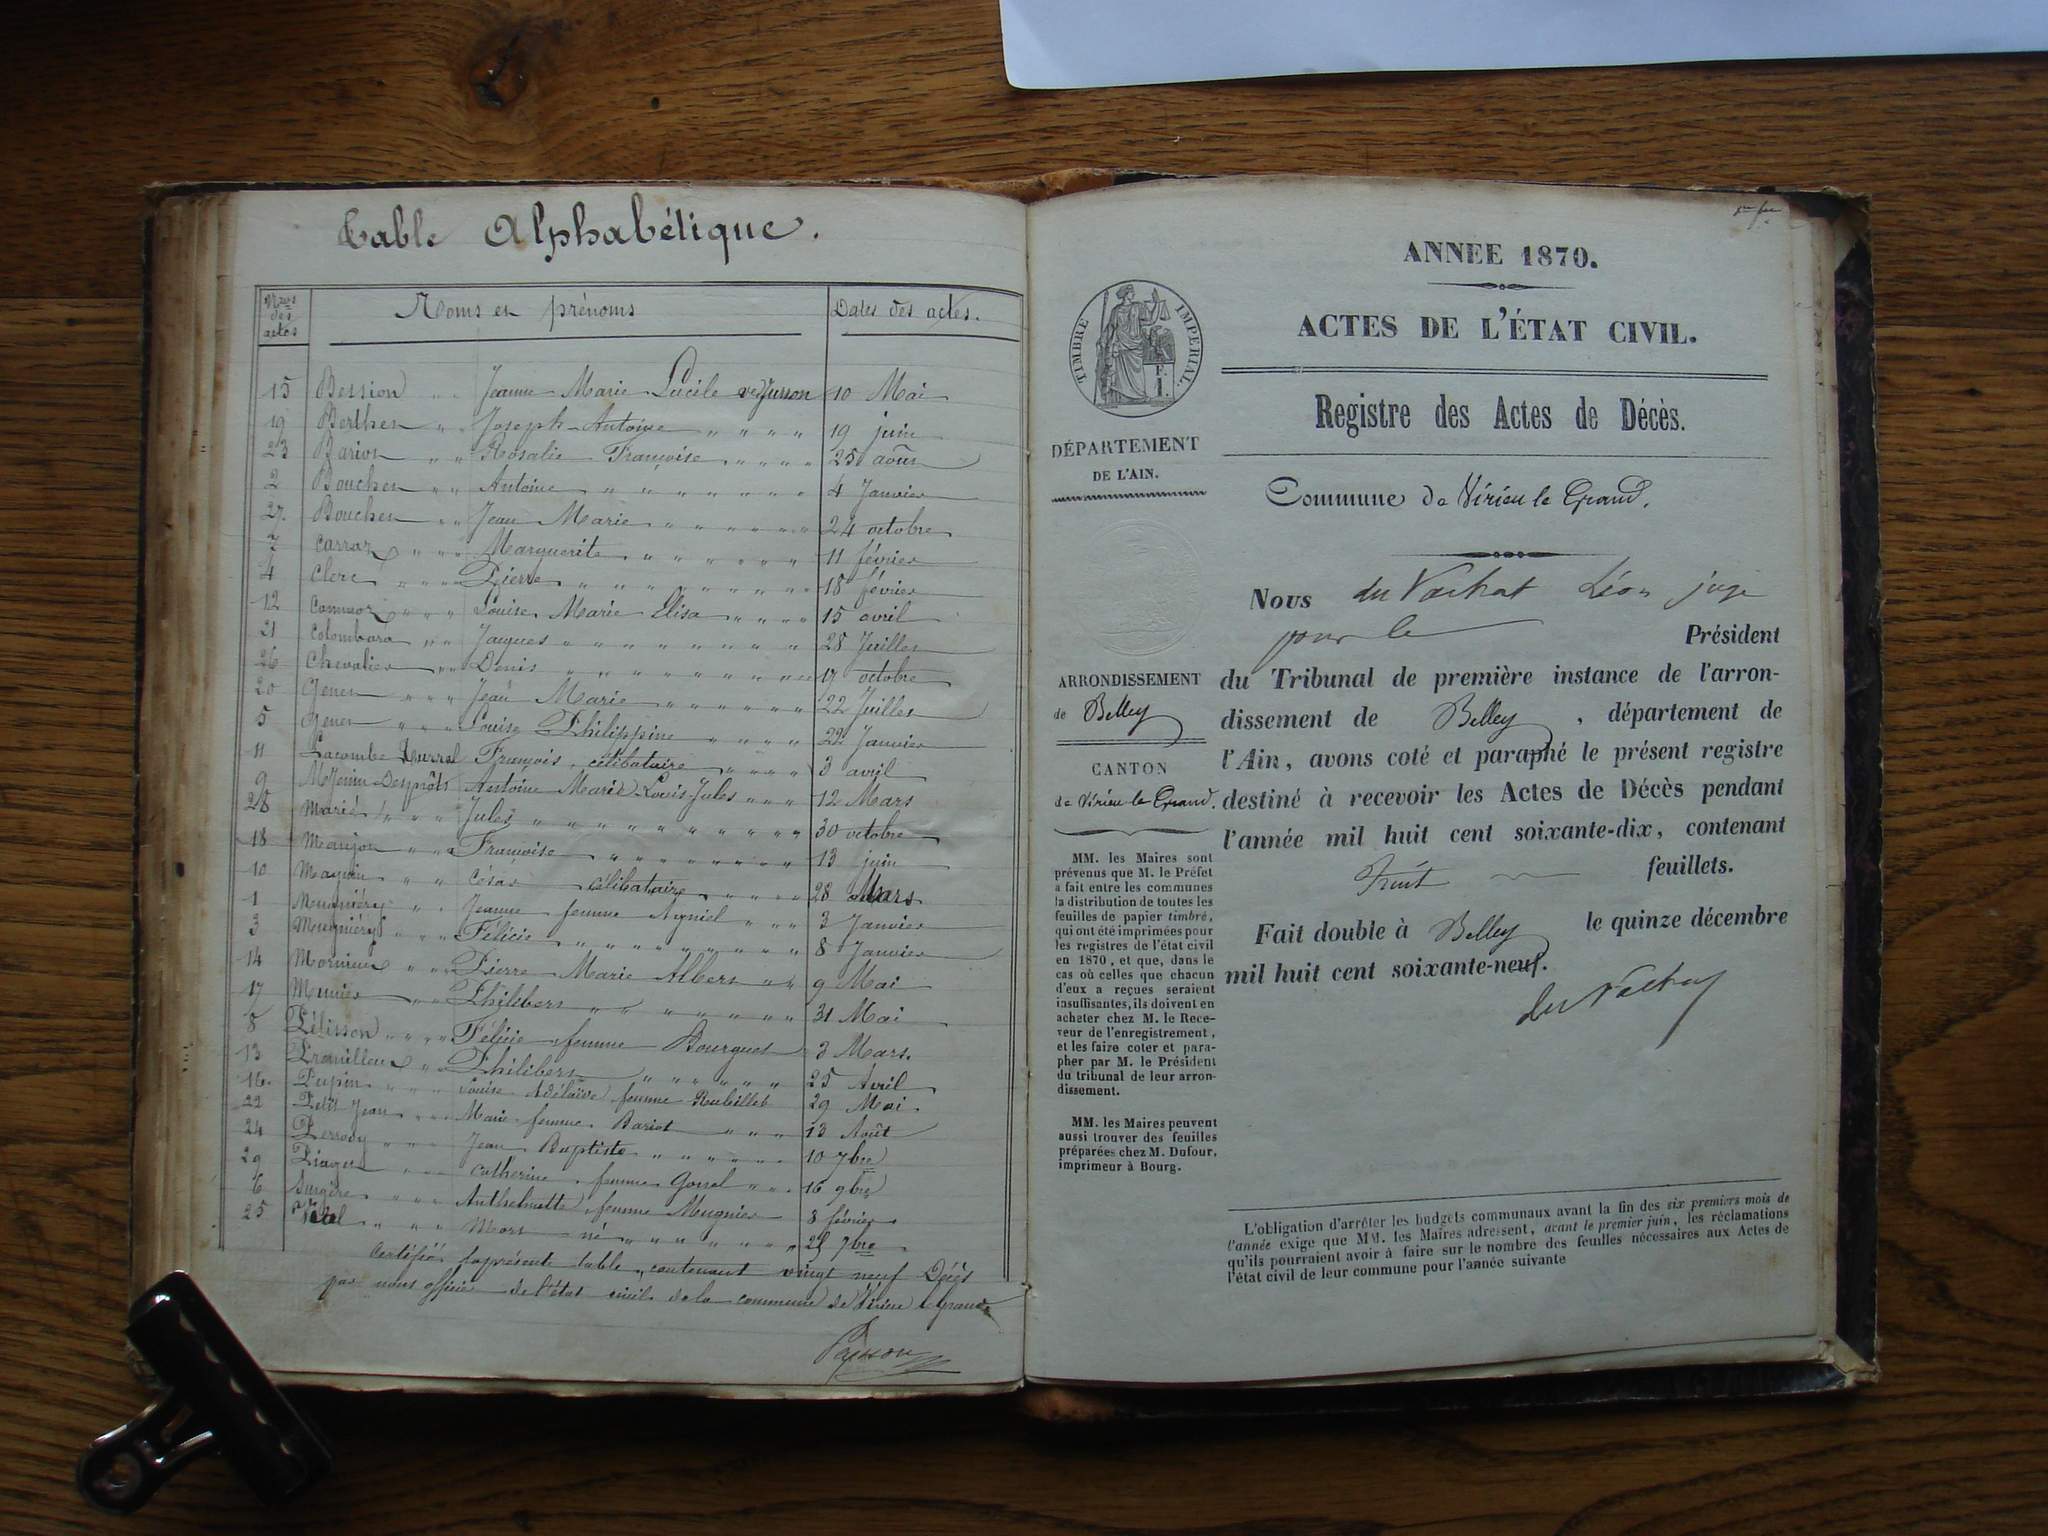 Table Alphabétique.
Nros des actes Noms et prénoms Dates des actes.
15 Bession " " Jeanne Marie Lucile 10 Mai
19 Berthet " " Joseph-Antoine " " " " 19 juin
23 Bariot " " Rosalie Françoise " " " " 25 août
2 Bouchet " " Antoine " " " " " " " 4 Janvier
27. Bouchet " " Jean Marie " " " " " " 24 octobre
7 Carraz " " " Marguerite " " " " " " 11 février
4 Clerc " " " Pierre " " " " " " " " 18 février
12 " " " Louise Marie Elisa " " " " 15 avril
21 Colombara " " Jacques " " " " " " " " 28 Juillet
26 Chevalier " " Denis " " " " " " " " 17 octobre
20 Genet " " " Jean Marie " " " " " " 22 Juillet
5 Genet " " " Louise Philippine " " " " 22 Janvier
11 Lacombe François, célibataire " " " " 3 avril
9 Antoine Marie Louis Jules " " " 12 Mars
28 Marié " " " Jules " " " " " " " " " 30 octobre
18 Manjot " " " Françoise " " " " " " " " 13 juin
10 " " César célibataire " " " " 28 Mars
1 " " Jeanne femme " " " 3 Janvier
3 " " " Félicie " " " " " " " " 8 Janvier
14 " " Pierre Marie Albert " " 9 Mai
17 Meunier " " Philibert " " " " " " " 31 Mai
8 Pélisson " " " " Félicie, femme Bourguet 3 Mars.
13 " " Philibert " " " " " " 25 Avril
16. Pupin " " " Louise Adélaïde femme Rubillet 29 Mai.
22 Petit Jean " " " Marie femme Bariot " " " 13 Août
24 " " " Jean Baptiste " " " " " " 10 7bre
29 Piaget " " " Catherine, femme " " . 16 9bre
6 Surgère " " " Anthelmette, femme Mugnier 8 février
25 Vial " " " Mort né " " " " " " " " 7bre
Certifié la présente table, contenant vingt neuf Décès
par nous officier de l'état civil de la commune de Virieu le Grand
1er feu
ANNÉE 1870.
ACTES DE L'ÉTAT CIVIL.
TIMBRE IMPÉRIAL.
Registre des Actes de Décès.
DÉPARTEMENT
DE L'AIN.
Commune de Virieu le Grand.
Nous du Vachat Léon juge
pour le Président
du Tribunal de première instance de l'arron-
dissement de Belley, département de
l'Ain, avons coté et paraphé le présent registre
destiné à recevoir les Actes de Décès pendant
l'année mil huit cent soixante-dix, contenant
huit feuillets.
Fait double à Belley le quinze décembre
mil huit cent soixante-neuf.
du Vachat
ARRONDISSEMENT
de Belley
CANTON
de Virieu le Grand.
MM. les Maires sont
prévenus que M. le Préfet
a fait entre les communes
la distribution de toutes les
feuilles de papier timbré,
qui ont été imprimées pour
les registres de l'état civil
en 1870, et que, dans le
cas où celles que chacun
d'eux a reçues seraient
insuffisantes, ils doivent en
acheter chez M. le Rece-
veur de l'enregistrement,
et les faire coter et para-
pher par M. le Président
du tribunal de leur arron-
dissement.
MM. les Maires peuvent
aussi trouver des feuilles
préparées chez M. Dufour,
imprimeur à Bourg.
L'obligation d'arrêter les budgets communaux avant la fin des six premiers mois de
l'année exige que MM. les Maires adressent, avant le premier juin, les réclamations
qu'ils pourraient avoir à faire sur le nombre des feuilles nécessaires aux Actes de
l'état civil de leur commune pour l'année suivante